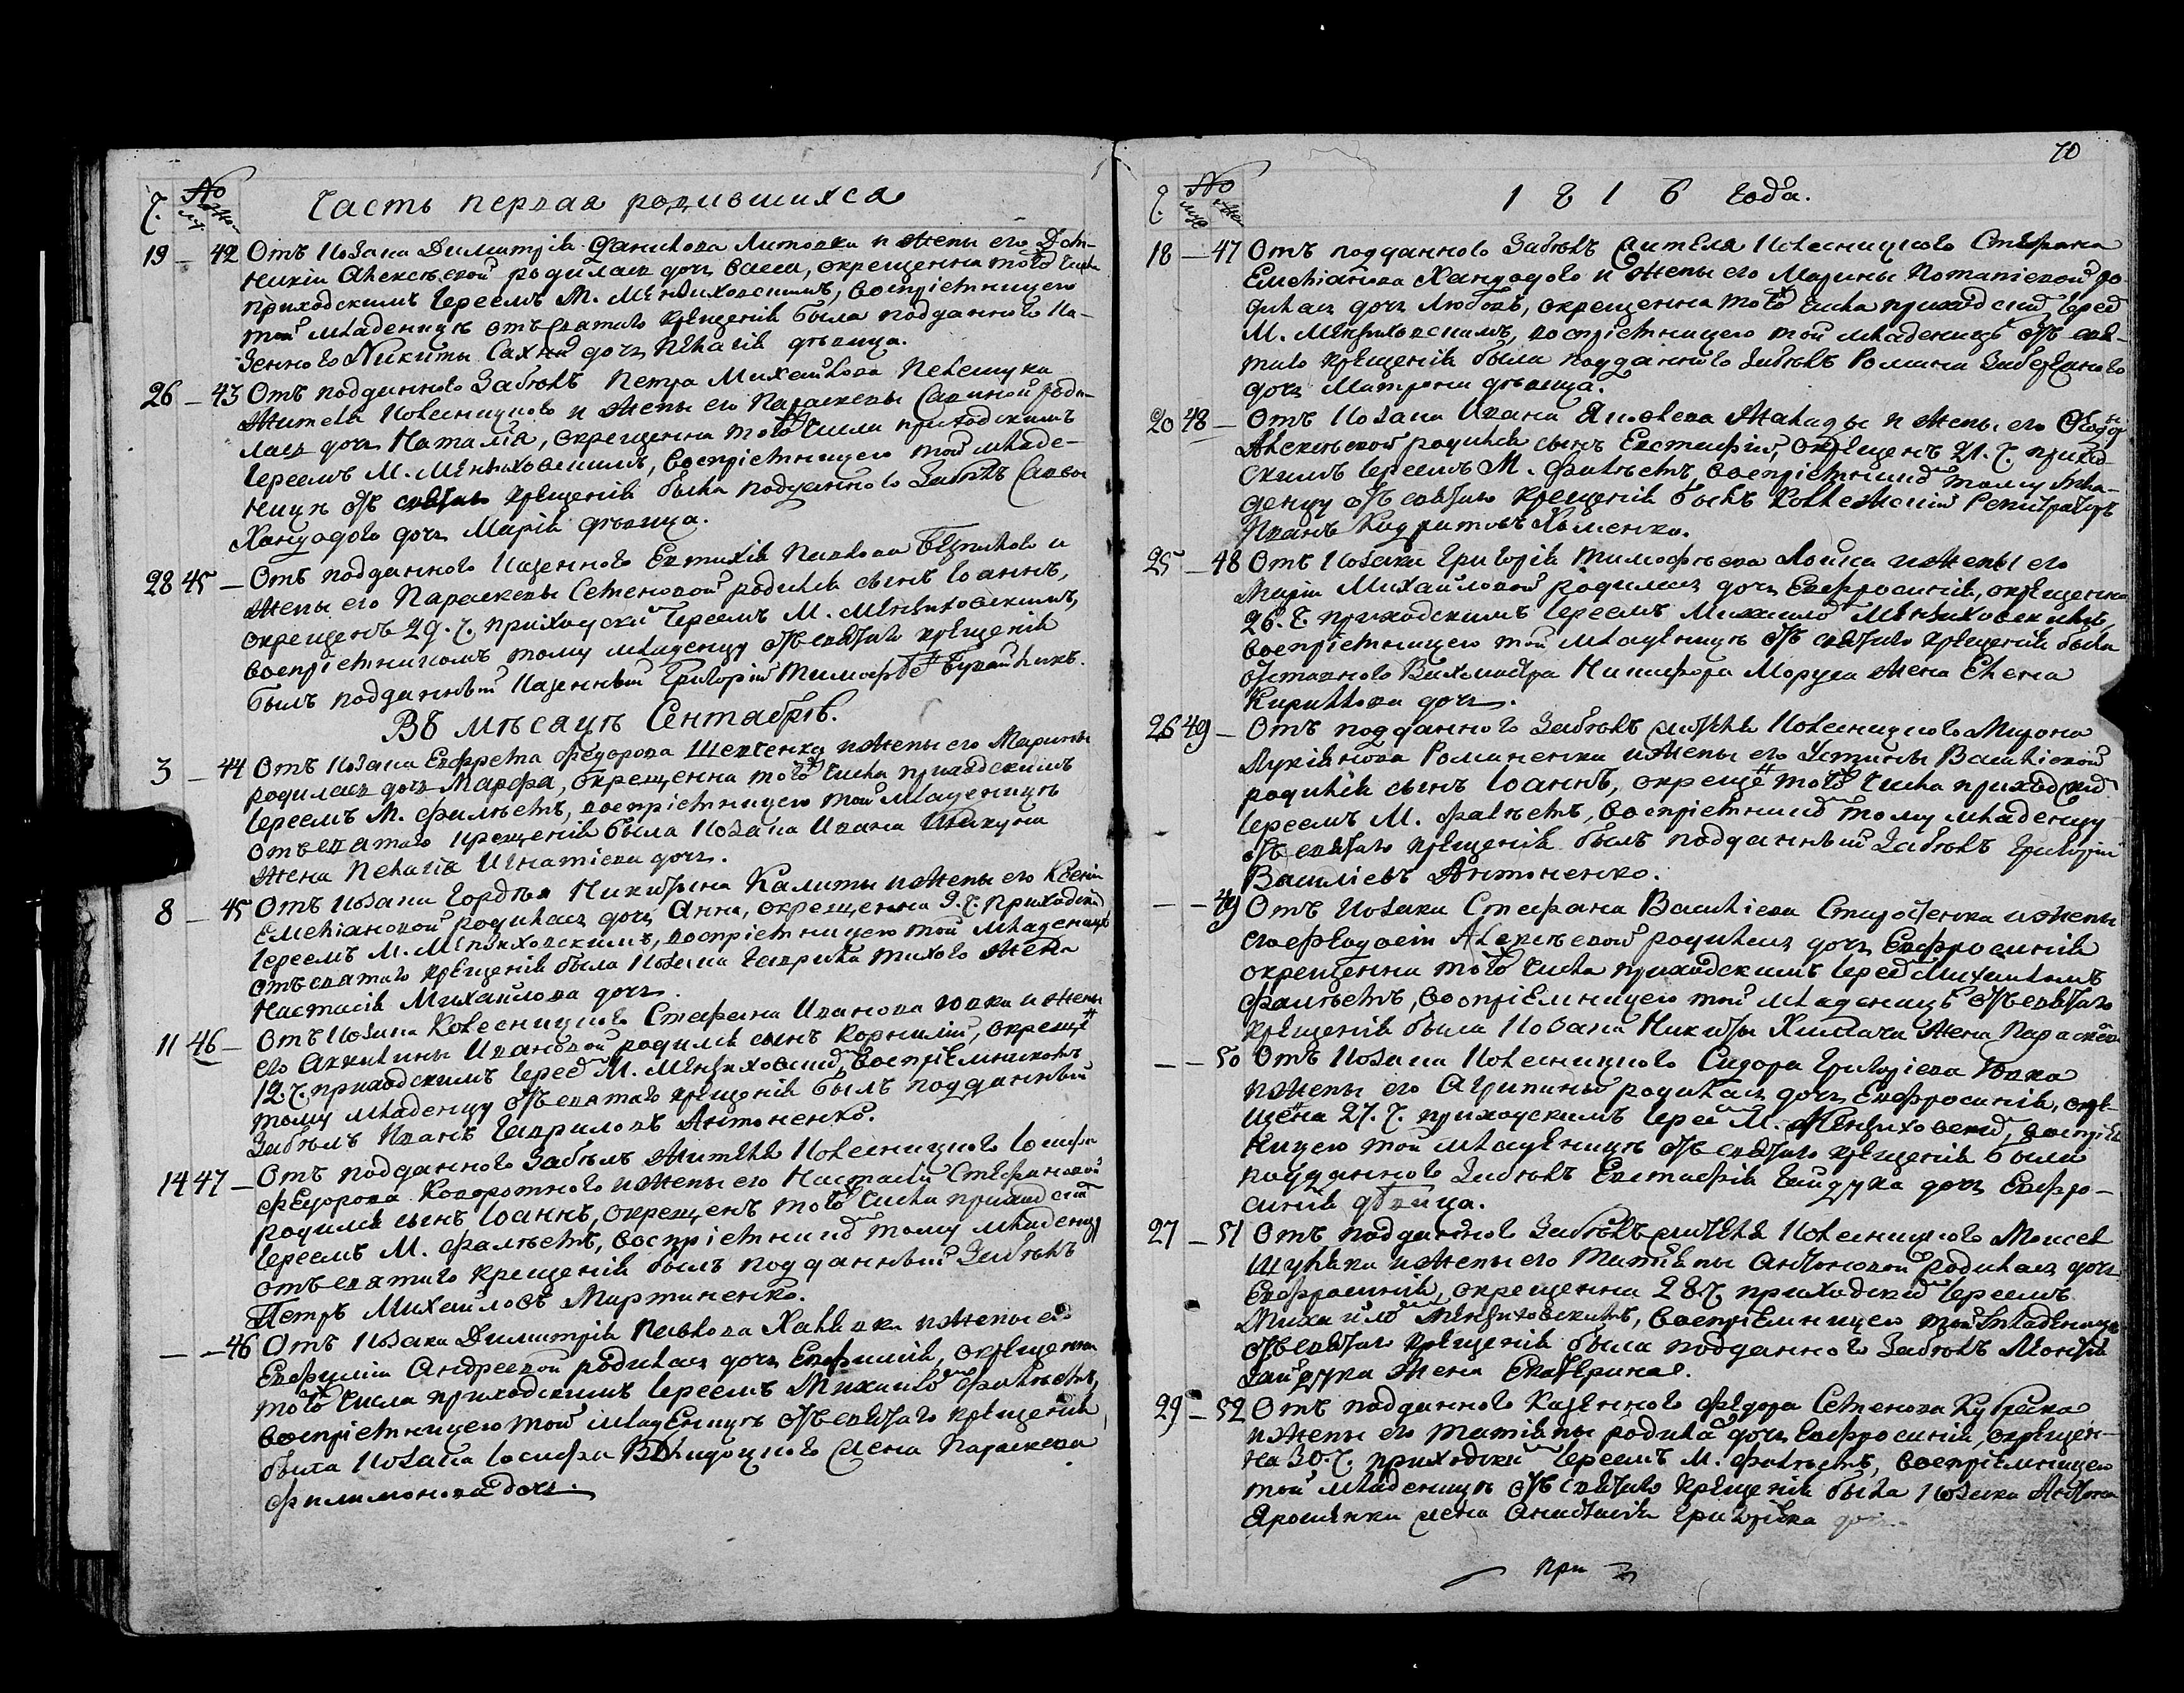 Часть первая родившихся
Ч. № муж. жен.
19 – 42 Отъ козака Димитрія Данилова Литовки и жены его Дом-
никіи Алексѣевой родилась дочь Васса, окрещенна того числа
приходскимъ Іереемъ М. Менжиховскимъ, воспріемницею
той младеницѣ отъ святаго крещенія была подданного ка-
зенного Никиты Сахна дочь Пелагія дѣвица.
26 – 43 Отъ подданного Забѣлъ Петра Михайлова Пелешука
жителя колесницкого и жены его Параскевы Савиной роди-
лась дочь Наталія, окрещенна того числа приходскимъ
Іереемъ М. Менжиховскимъ, воспріемницею той младе-
ницѣ отъ святаго крещенія была подданного Забѣлъ Саввы
Хандодого дочь Марія дѣвица.
28 45 – Отъ подданного казенного Евтихія Павлова и
жены его Параскевы Семеновой родился сынъ Іоаннъ,
окрещенъ 29. ч. приходскимъ Іереемъ М. Менжиховскимъ,
воспріемникомъ тому младенцу отъ святаго крещенія
былъ подданный казенный Григорій Тимофѣевъ
Въ мѣсяцѣ Сентябрѣ.
3 – 44 Отъ козака Ефрема Федорова Шевченка и жены его Марины
родилась дочь Марфа, окрещенна того числа приходскимъ
Іереемъ М. Филѣетъ, воспріемницею той младеницѣ
отъ святаго крещенія была козака Ивана
жена Пелагія Игнатіева дочь.
8 – 45 Отъ козака Гордѣя Никитина Калиты и жены его Ксеніи
Емеліановой родилась дочь Анна, окрещенна 9. ч. приходскимъ
Іереемъ М. Менжиховскимъ, воспріемницею той младеницѣ
отъ святаго крещенія была козака Гаврила Тихого жена
Настасія Михайлова дочь.
11 46 – Отъ козака колесницкого Стефана Иванова Ювка и жены
его Акилины Ивановой родился сынъ Корнилій, окрещенъ
12. ч. приходскимъ Іереемъ М. Менжиховскимъ, воспріемникомъ
тому младенцу отъ святаго крещенія былъ подданный
Забѣлъ Иванъ Гавриловъ Антоненко.
14 47 – Отъ подданного Забѣлъ жителя колесницкого Іосифа
Федорова Коворотного и жены его Настасіи Стефановой
родился сынъ Іоаннъ, окрещенъ того числа приходскимъ
Іереемъ М. Филѣетъ, воспріемникомъ тому младенцу
отъ святаго крещенія былъ подданный Забѣлъ
Петръ Михайловъ Мартиненко.
– – 46 Отъ козака Димитрія Павлова Халявки и жены его
Евфиміи Андреевой родилась дочь Евфимія, окрещенна
того числа приходскимъ Іереемъ Михаиломъ Филѣетъ,
воспріемницею той младеницѣ отъ святаго крещенія
была козака Іосифа жена Параскева
Филимонова дочь.
70
1816 года.
Ч. № муж. жен.
18 – 47 Отъ подданного Забѣлъ жителя колесницкого Стефана
Емеліанова Хандодого и жены его Марины Потапіевой ро-
дилась дочь Любовь, окрещенна того числа приходскимъ Іереемъ
М. Менжиховскимъ, воспріемницею той младеницѣ отъ свя-
таго крещенія была подданного Забѣлъ Романа
дочь Матрона дѣвица.
20 48 – Отъ козака Ивана Яковлева Жалады и жены его Феодосіи
Алексѣевой родился сынъ Евстафій, окрещенъ 21. ч. приход-
скимъ Іереемъ М. Филѣетъ, воспріемникомъ тому мла-
денцу отъ святаго крещенія былъ Коллежскій Регистраторъ
Иванъ Кодратовъ Хоменко.
25 – 48 Отъ козака Григорія Тимофѣева Лойка и жены его
Маріи Михайловой родилась дочь Евфросинія, окрещенна
26. ч. приходскимъ Іереемъ Михаиломъ Менжиховскимъ,
воспріемницею той младеницѣ отъ святаго крещенія была
отставного Вахмистра Никифора Моруга жена Елена
Кирилова дочь.
26 49 – Отъ подданного Забѣлъ жителя колесницкого Мирона
Лукіянова Романенка и жены его Устины Василіевой
родился сынъ Іоаннъ, окрещенъ того числа приходскимъ
Іереемъ М. Филѣетъ, воспріемникомъ тому младенцу
отъ святаго крещенія былъ подданный Забѣлъ Григорій
Василіевъ Антоненко.
– – 49 Отъ козака Стефана Василіева и жены
его Феодосіи Алексѣевой родилась дочь Евфросинія
окрещенна того числа приходскимъ Іереемъ Михаиломъ
Филѣетъ, воспріемницею той младеницѣ отъ святаго
крещенія была козака Никиты Химича жена Параскева
– – 50 Отъ козака колесницкого Сидора Григоріева Ювка
и жены его Агрипины родилась дочь Евфросинія, окре-
щена 27. ч. приходскимъ Іереемъ М. Менжиховскимъ, воспріем-
ницею той младеницѣ отъ святаго крещенія была
подданного Забѣлъ Евстафія Гайдука дочь Евфро-
синія дѣвица.
27 – 51 Отъ подданного Забѣлъ жителя колесницкого Моисея
Шуляка и жены его Татіяны Антоновой родилась дочь
Евфросинія, окрещенна 28 ч. приходскимъ Іереемъ
Михаиломъ Менжиховскимъ, воспріемницею той младеницѣ
отъ святаго крещенія была подданного Забѣлъ Моисея
Гайдука жена Екатерина.
29 – 52 Отъ подданного казенного Федора Семенова
и жены его Татіяны родилась дочь Евфросинія, окрещен-
на 30. ч. приходскимъ Іереемъ М. Филѣетъ, воспріемницею
той младеницѣ отъ святаго крещенія была козака Антона
Ярошенка жена Анастасія Григоріева дочь.
При